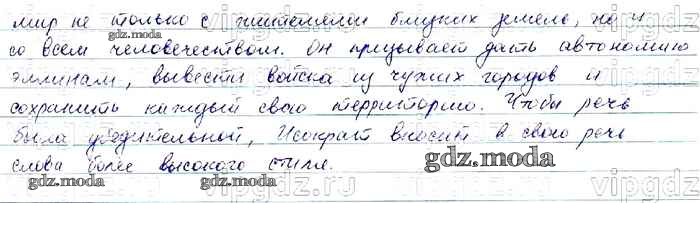 мир не только с жителями близких земель, но и
со всем человечеством. Он призывает дать автономию
эллинам, вывести войска из чужих городов и
сохранить каждый свою территорию. Чтобы речь
была убедительной, Исократ вносит в свою речь
слова более высокого стиля.
gdz.moda
gdz.moda
gdz.moda
gdz.moda
gdz.moda
gdz.moda
vipgdz.ru
vipgdz